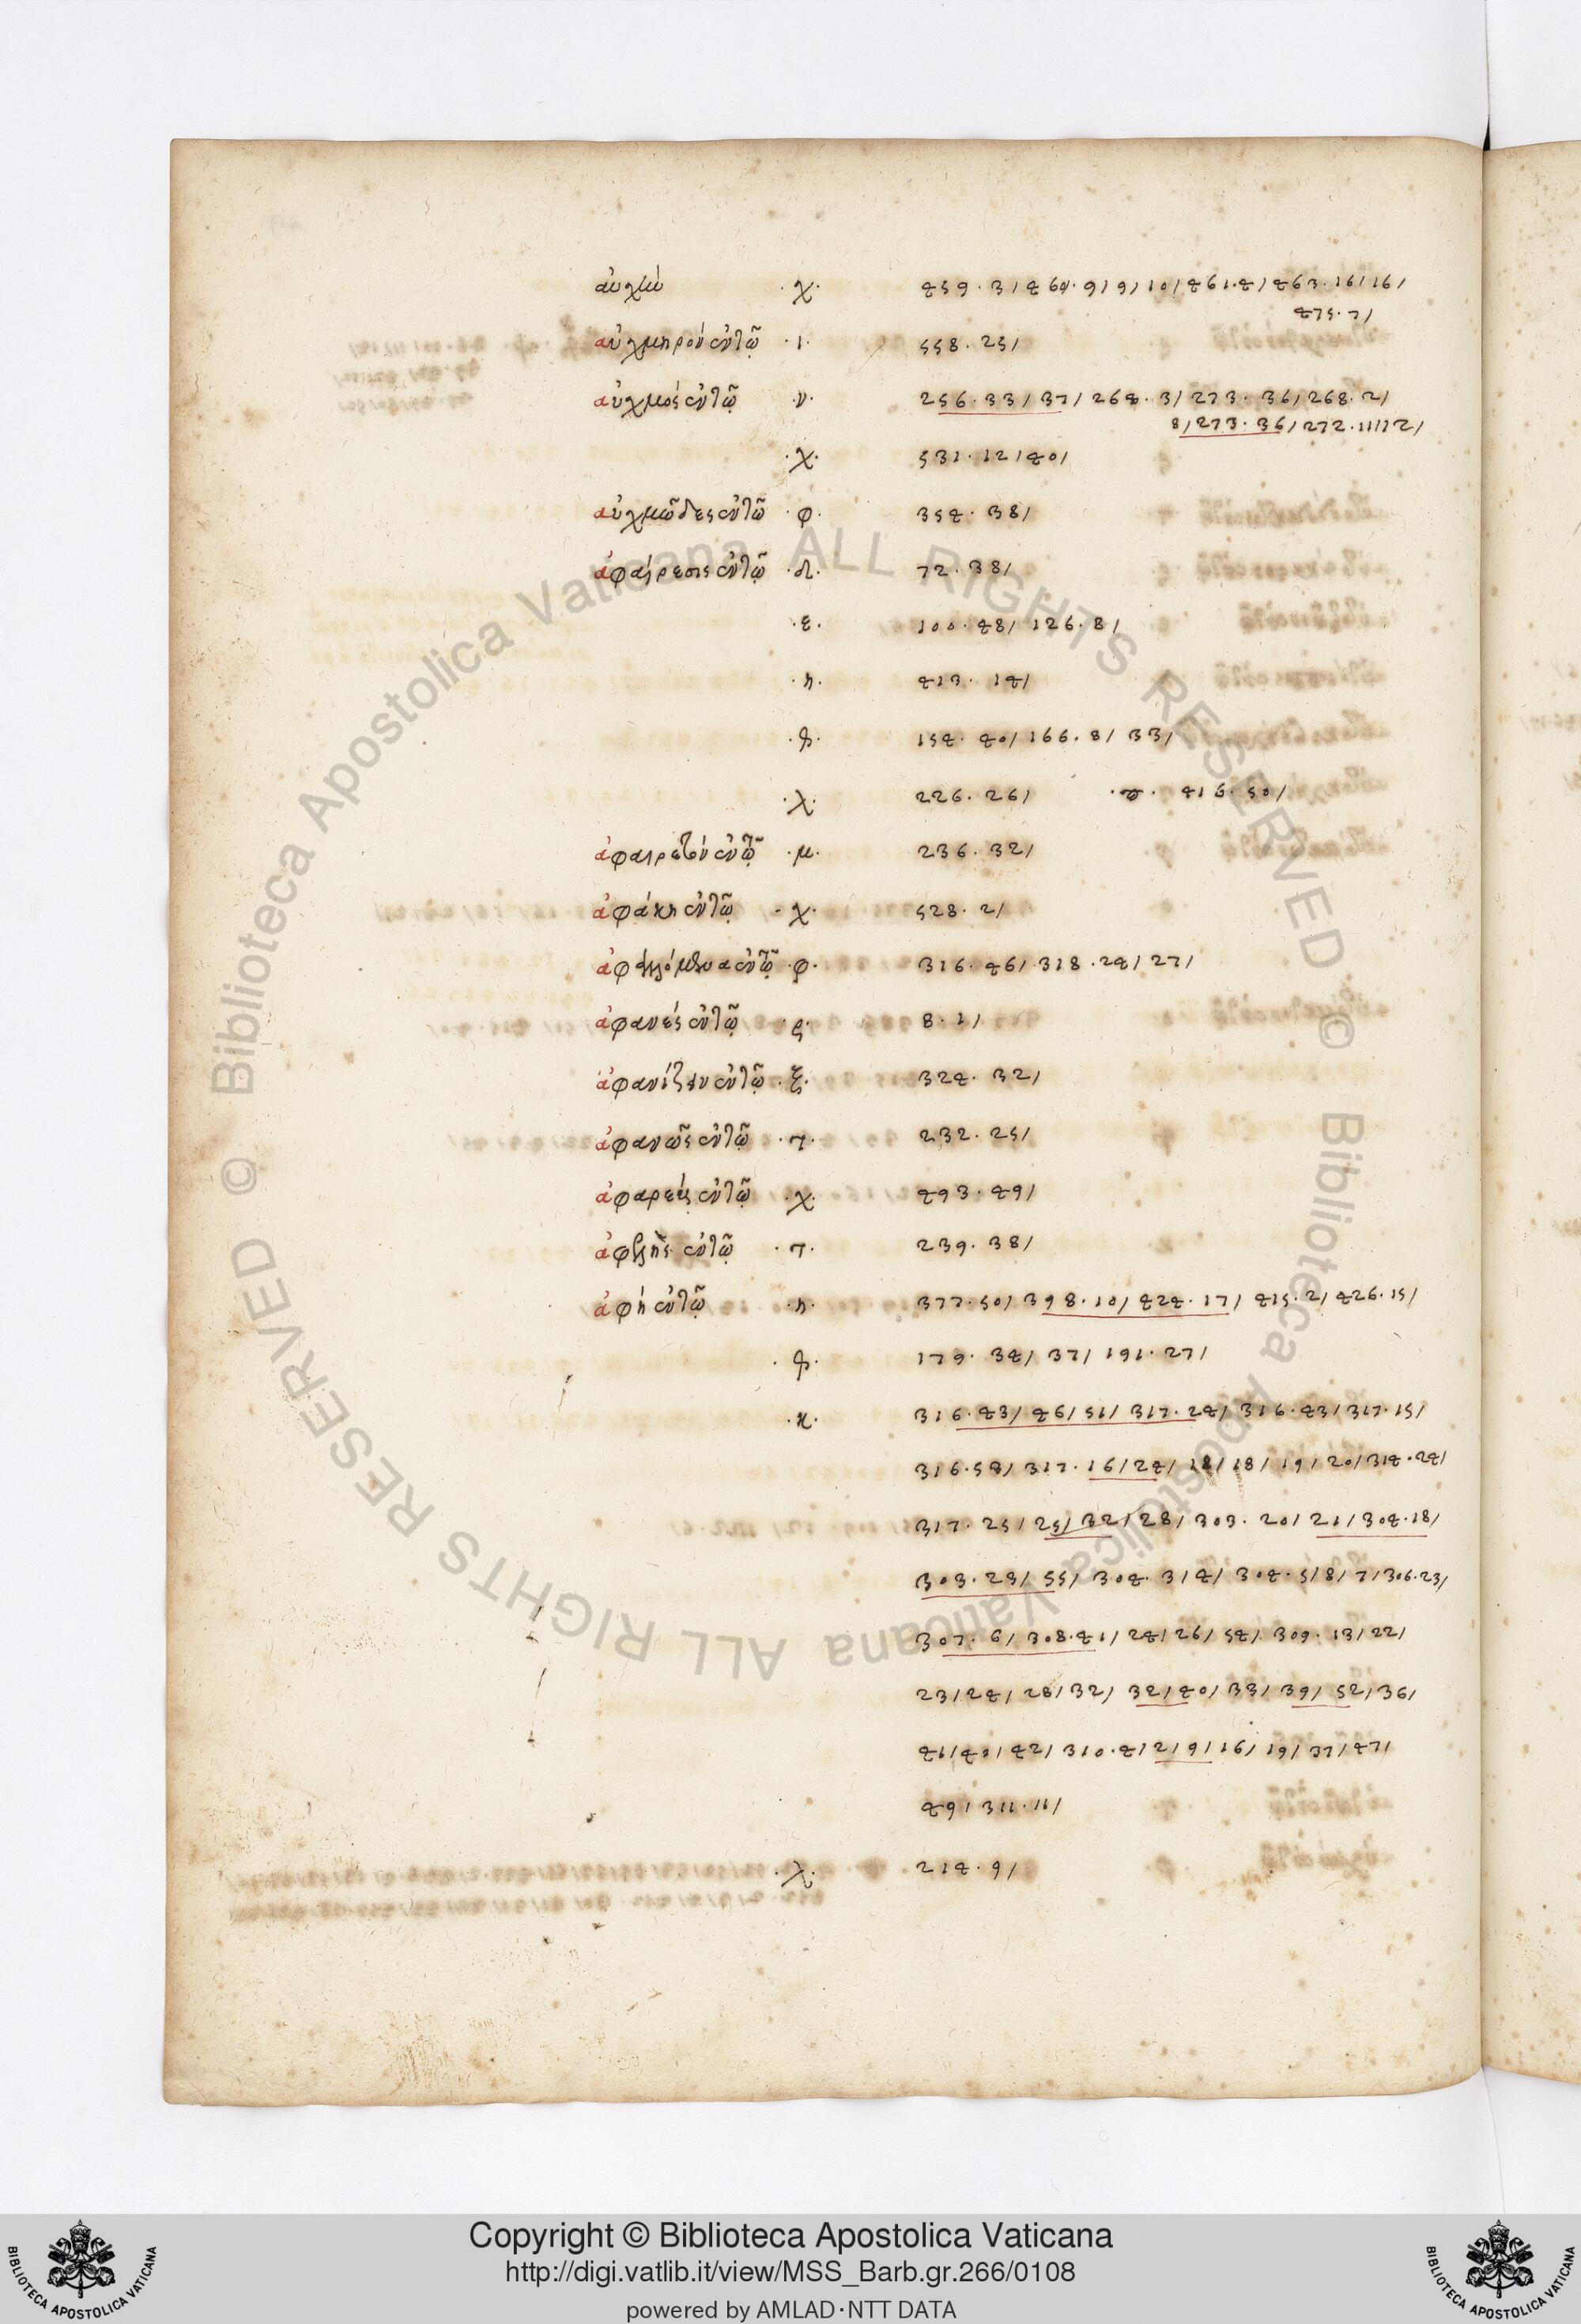 αὐχὴν ·χ· 459·3/460·9/9/10/461·4/463·16/16/
475·7/
αὐχμηρὸν ἐν τῷ ·ι· 558·25/
αὐχμὸς ἐν τῷ ·ν· 256·33/37/264·3/273·36/268·2/
8/273·36/272·11/12/
·χ· 531·12/40/
αὐχμῶδες ἐν τῷ ·φ· 354·38/
ἀφαίρεσις ἐν τῷ ·δ· 72·38/
·ε· 100·48/126·8/
·η· 413·14/
·θ· 154·40/166·8/33/
·λ· 226·26/ 416·50/
ἀφαιρετὸν ἐν τῷ ·μ· 236·32/
ἀφάκη ἐν τῷ ·χ· 528·2/
ἐν τῷ ·φ· 316·46/318·24/27/
ἀφανὲς ἐν τῷ 8·1/
ἀφανίζειν ἐν τῷ ·ξ· 324·32/
ἀφανῶς ἐν τῷ ·τ· 232·25/
ἀφαρεὺς ἐν τῷ ·χ· 493·49/
ἐν τῷ ·τ· 239·38/
ἀφὴ ἐν τῷ ·η· 377·50/398·10/424·17/415·2/426·15/
·θ· 179·34/37/191·27/
·κ· 316·43/46/51/317·24/316·43/317·15/
316·58/317·16/24/18/18/19/20/314·24/
317·25/25/32/28/303·20/21/304·18/
303·23/55/304·3/4/304·5/8/7/306·23/
307·6/308·41/24/26/54/309·13/22/
23/24/28/32/32/40/33/39/52/36/
41/40/42/310·4/2/9/16/19/37/47/
49/311·11/
·λ· 214·9/
Copyright © Biblioteca Apostolica Vaticana
http://digi.vatlib.it/view/MSS_Barb.gr.266/0108
powered by AMLAD·NTT DATA
© Biblioteca Apostolica Vaticana ALL RIGHTS RESERVED © Biblioteca Apostolica Vaticana ALL RIGHTS RESERVED
BIBLIOTECA APOSTOLICA VATICANA
BIBLIOTECA APOSTOLICA VATICANA